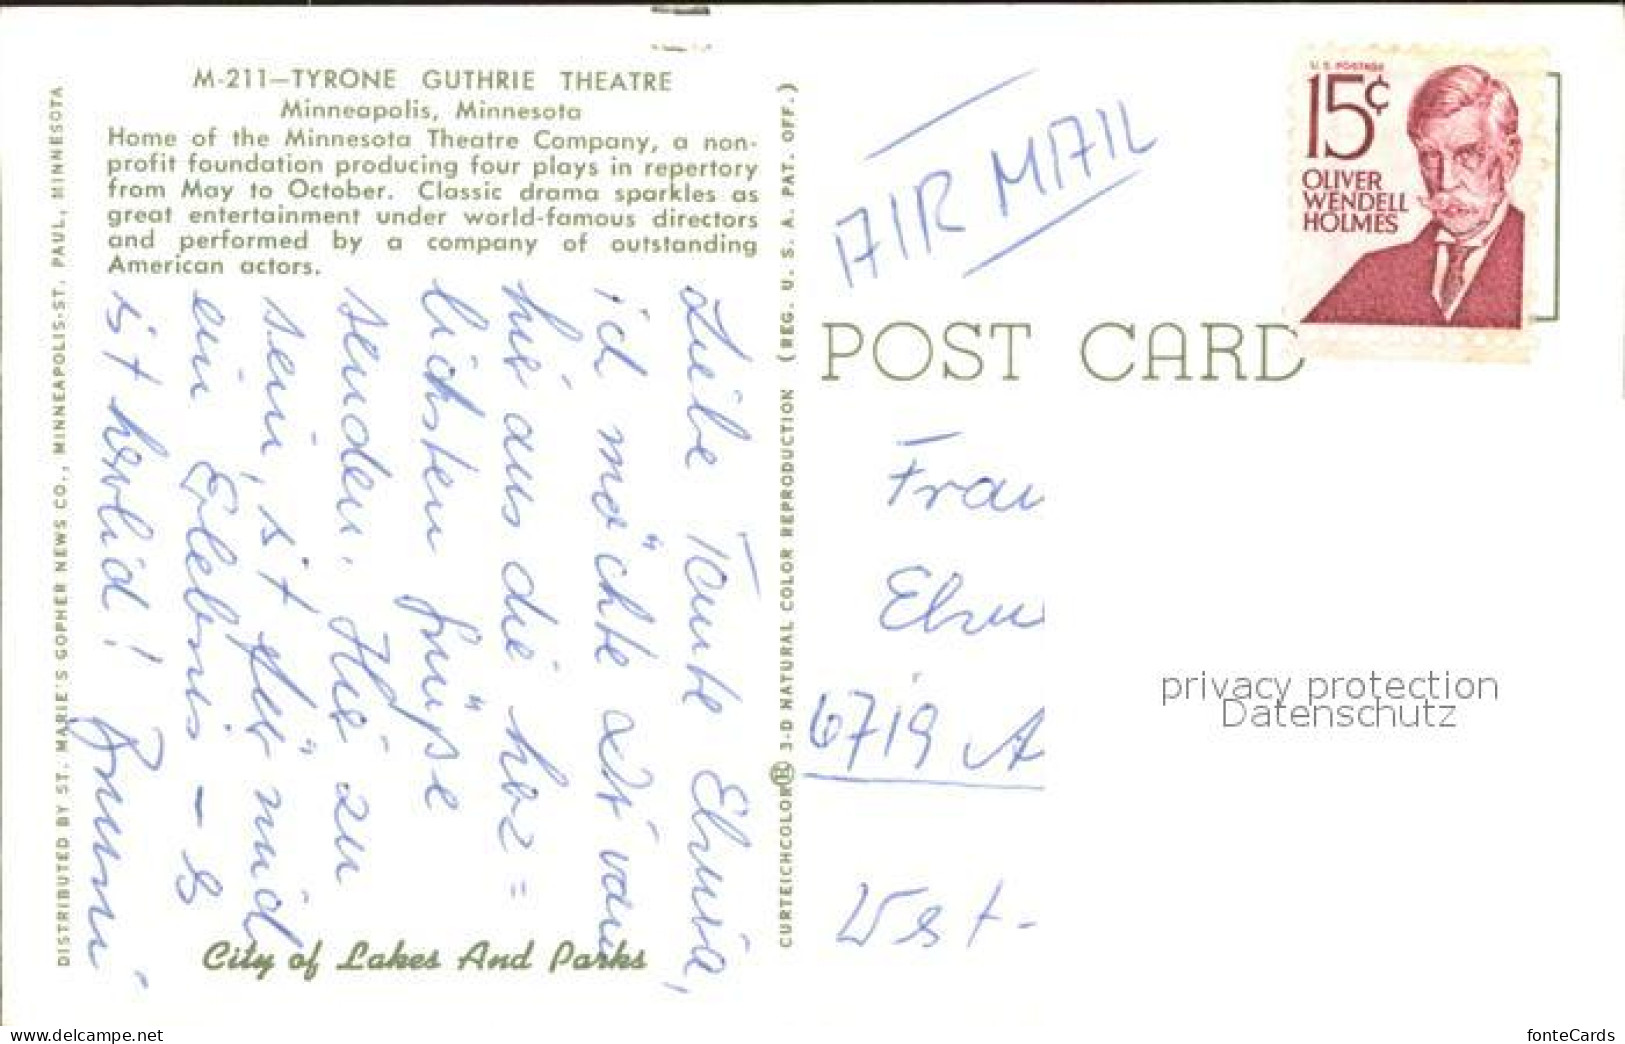 M-211—TYRONE GUTHRIE THEATRE
Minneapolis, Minnesota
Home of the Minnesota Theatre Company, a non-
profit foundation producing four plays in repertory
from May to October. Classic drama sparkles as
great entertainment under world-famous directors
and performed by a company of outstanding
American actors.
DISTRIBUTED BY ST. MARIE'S GOPHER NEWS CO., MINNEAPOLIS-ST. PAUL, MINNESOTA
Liebe Tante Elvira,
ich möchte dir von
hie aus die herz=
lichsten Grüße
senden. Hie zu
sein, ist für mich
ein Erlebnis – es
ist herrlich!
City of Lakes And Parks
CURTEICHCOLOR® 3-D NATURAL COLOR REPRODUCTION (REG. U. S. A. PAT. OFF.)
AIR MAIL
U.S. POSTAGE
15¢
OLIVER
WENDELL
HOLMES
POST CARD
Frau
6719 A
West-
privacy protection
Datenschutz
www.delcampe.net
fonteCards